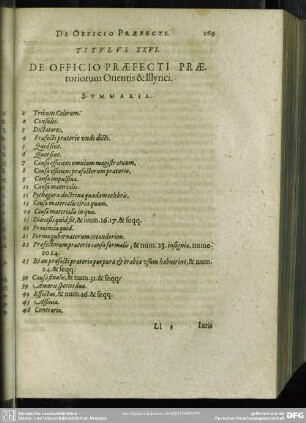 DE OFFICIO PRÆFECTI. 269
TITVLVS XXVI.
DE OFFICIO PRÆFECTI PRÆ-
toriorum Orientis & Illyrici.
SVMMARIA.
1 Tribuni Celerum.
2 Consules.
3 Dictatores.
4 Præfecti prætorio vnde dicti.
5 Quid sint.
6 Quot sint.
7 Causa efficiens omnium magistratuum.
8 Causa efficiens præfectorum prætorio.
9 Causa impulsiua.
10 Causa materialis.
11 Pythagoræ doctrina quædam celebris.
13 Causa materialis circa quam.
14 Causa materialis in qua.
15 Diœcesis quid sit, & num. 16. 17. & seqq.
20 Prouincia quid.
21 Forma gubernatorum creandorum.
22 Præfectorum prætorio causa formalis, & num. 23. insignia, nume-
ro 24.
25 Et an præfecti prætorio purpura & trabea vsum habuerint, & num.
24. & seqq.
30 Causa finalis, & num. 31. & seqq.
39 Amoris species duæ.
40 Effectus, & num. 26. & seqq.
45 Affinia.
48 Contraria.
Ll 3 Iuris